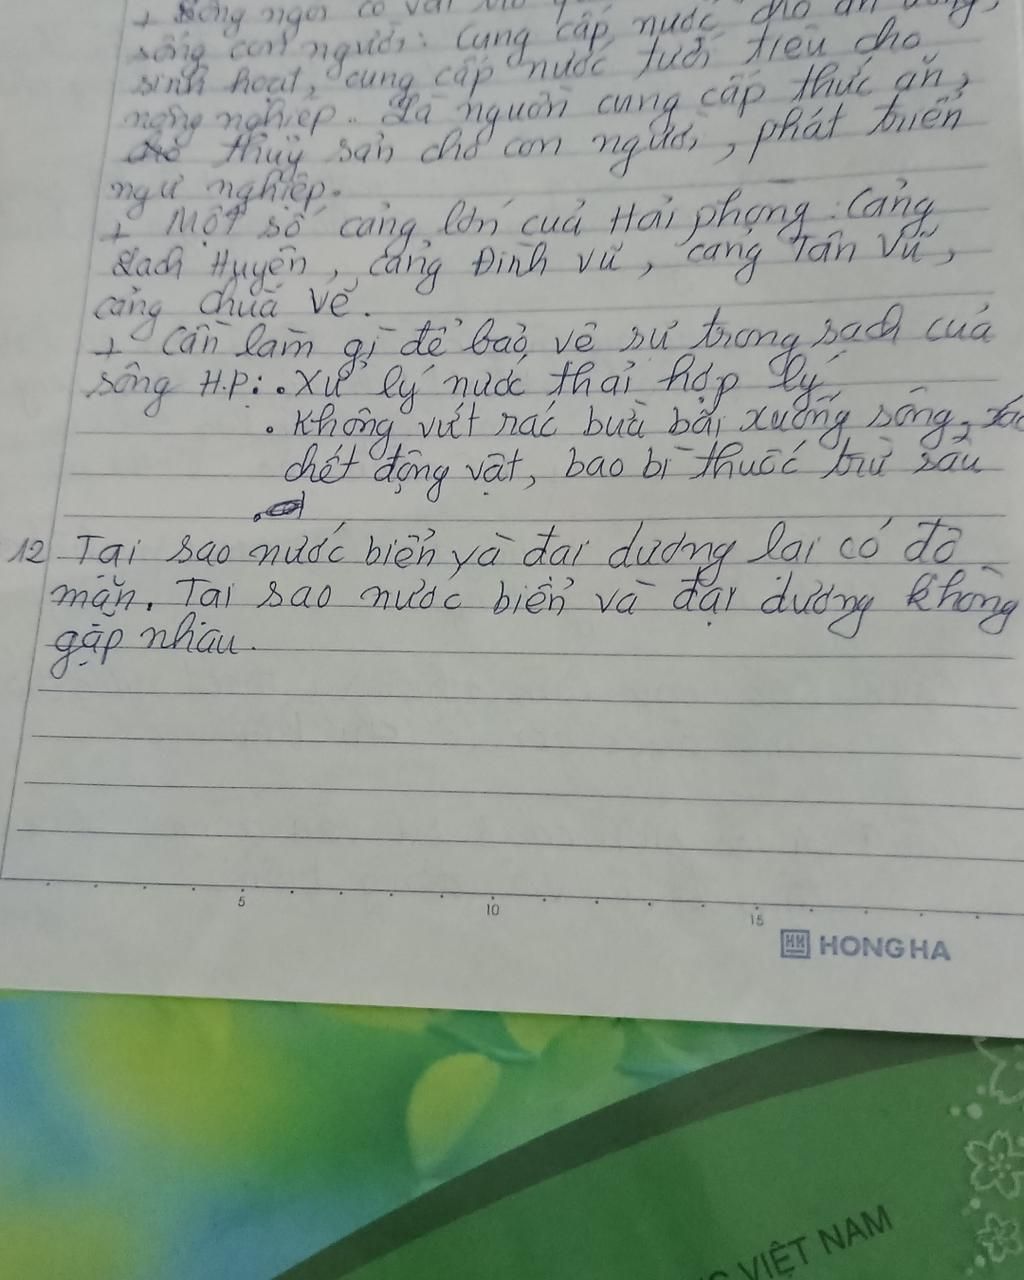 + Sông ngòi có vai
sống con người: Cung cấp nước cho ăn uống,
sinh hoạt, cung cấp nước tưới tiêu cho
nông nghiệp. Là nguồn cung cấp thức ăn,
thuỷ sản cho con người, phát triển
ngư nghiệp.
+ Một số cảng lớn của Hải phòng: Cảng
Lạch Huyện, cảng Đình Vũ, cảng Tân Vũ,
cảng chùa Vẽ.
+ Cần làm gì để bảo vệ sự trong sạch của
sông H.P: • Xử lý nước thải hợp lý
• Không vứt rác bừa bãi xuống sông, xác
chết động vật, bao bì thuốc trừ sâu
12 Tại sao nước biển và đại dương lại có độ
mặn. Tại sao nước biển và đại dương không
gặp nhau.
5 10 15
HH HONG HA
VIỆT NAM